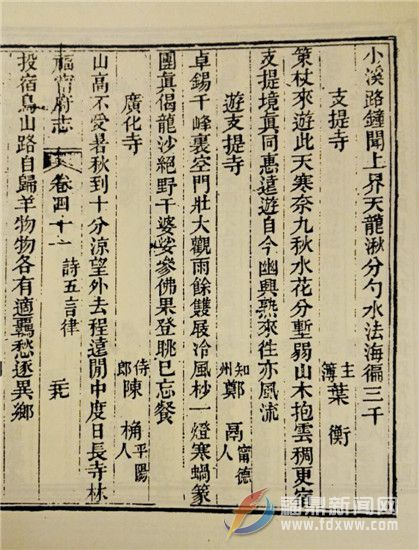 小溪路鐘聞上界天龍湫分勺水法海徧三千
支提寺 主簿葉衡
策杖來遊此天寒奈九秋水花分塹弱山木抱雲稠更宿
支提境眞同惠遠遊自今幽興熟來往亦風流
遊支提寺 知州鄭鬲甯德人
卓錫千峰裏空門壯大觀雨餘雙屐冷風杪一燈寒蝸篆
團眞偈龍沙絕野干婆娑參佛果登眺已忘餐
廣化寺 侍郎陳桷平陽人
山高不受暑秋到十分涼望外去程遠閒中度日長寺林
福甯府志 卷四十一 詩五言律
投宿鳥山路自歸羊物物各有適羈愁逐異鄉
福鼎新闻网
www.fdxww.com